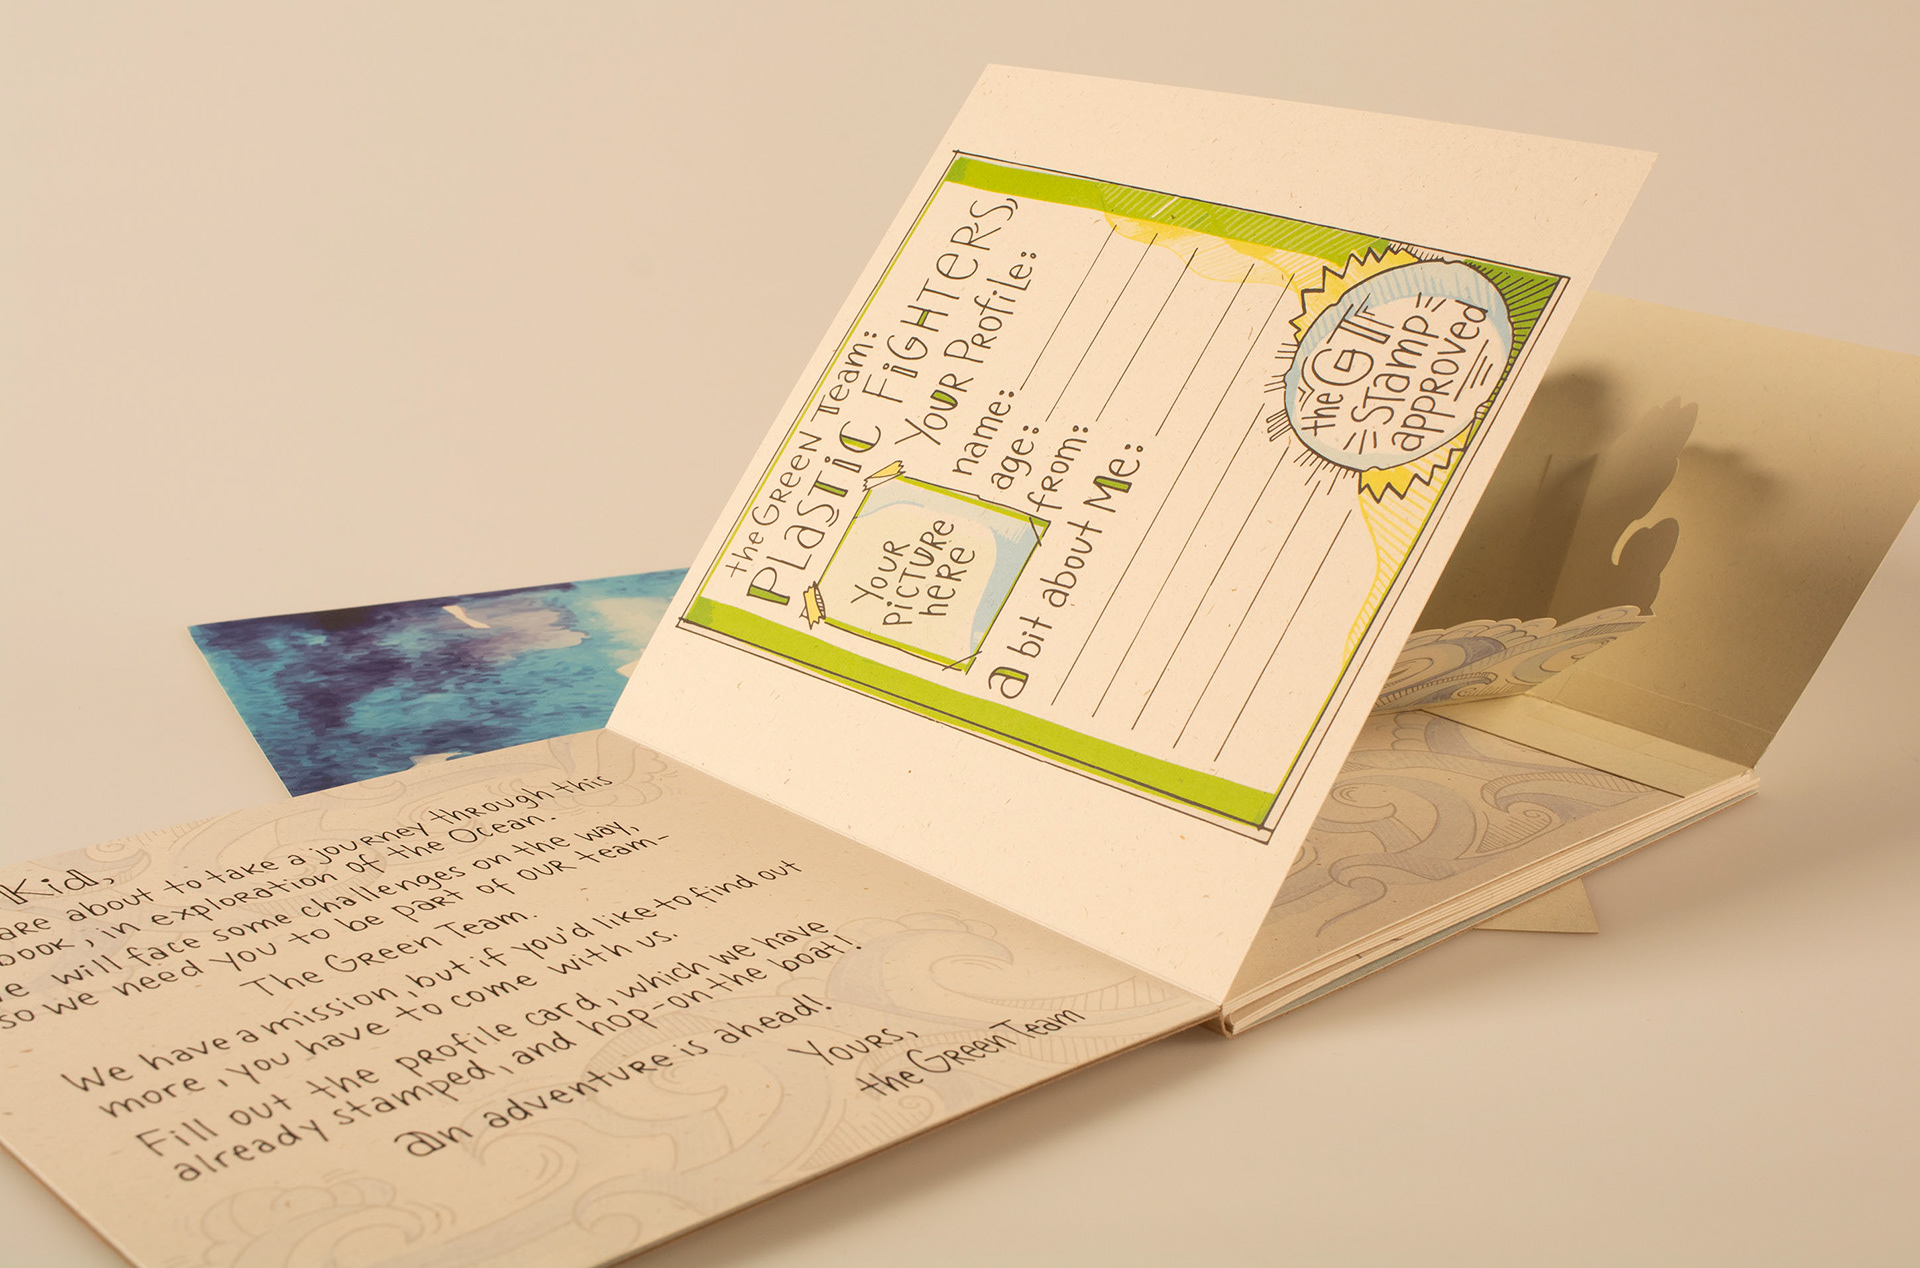 Kid,
are about to take a journey through this
book, in exploration of the Ocean.
we will face some challenges on the way,
so we need you to be part of our team-
The Green Team.
We have a mission, but if you'd like to find out
more, you have to come with us.
Fill out the profile card, which we have
already stamped, and hop-on the boat!.
An adventure is ahead!
Yours,
the Green Team
the Green Team:
PLastic FiGHTERS,
Your Profile:
name:
age:
from:
a bit about Me:
Your
picture
here
the GT
stamp
approved